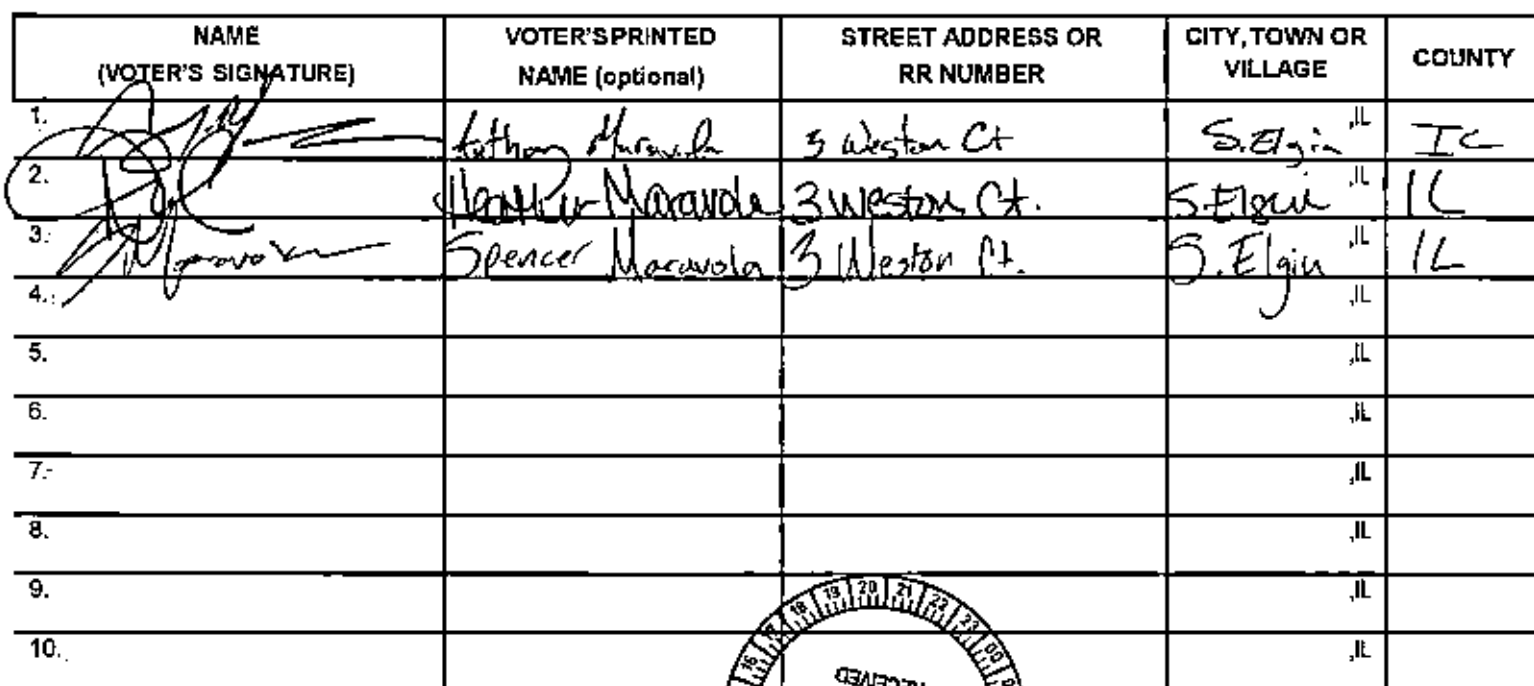 NAME (VOTER'S SIGNATURE) VOTER'S PRINTED NAME (optional) STREET ADDRESS OR RR NUMBER CITY, TOWN OR VILLAGE COUNTY
1. Anthony Maravola 3 Weston Ct S. Elgin ,IL IL
2. Heather Maravola 3 Weston Ct. S. Elgin ,IL IL
3. Maravola Spencer Maravola 3 Weston Ct. S. Elgin ,IL IL
4. ,IL
5. ,IL
6. ,IL
7. ,IL
8. ,IL
9. ,IL
10. ,IL
16 17 18 19 20 21 22 23 00
RECEIVED